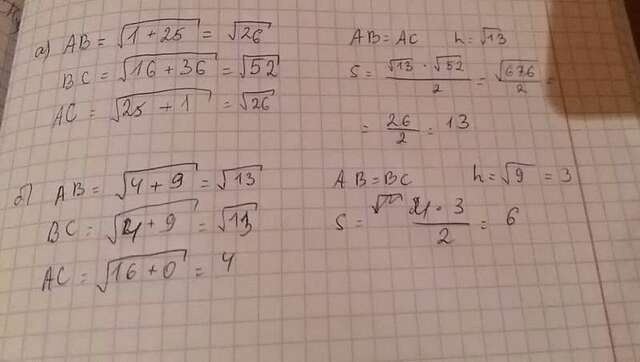 а) AB = √(1 + 25) = √26
BC = √(16 + 36) = √52
AC = √(25 + 1) = √26
AB = AC h = √13
S = (√13 · √52)/2 = √676/2 =
= 26/2 = 13
б) AB = √(4 + 9) = √13
BC = √(4 + 9) = √13
AC = √(16 + 0) = 4
AB = BC h = √9 = 3
S = (4 · 3)/2 = 6